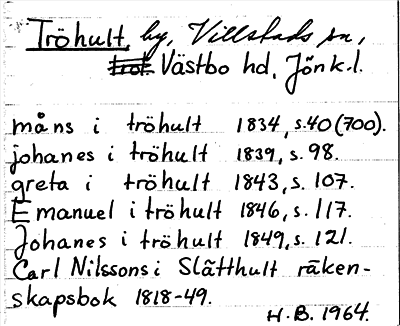 Tröhult, by, Villstads sn,
Västbo hd, Jönk.l.
måns i tröhult 1834, s.40 (700).
johanes i tröhult 1839, s. 98.
greta i tröhult 1843, s. 107.
Emanuel i tröhult 1846, s. 117.
Johanes i tröhult 1849, s. 121.
Carl Nilssons i Slätthult räken-
skapsbok 1818-49.
H.B. 1964.